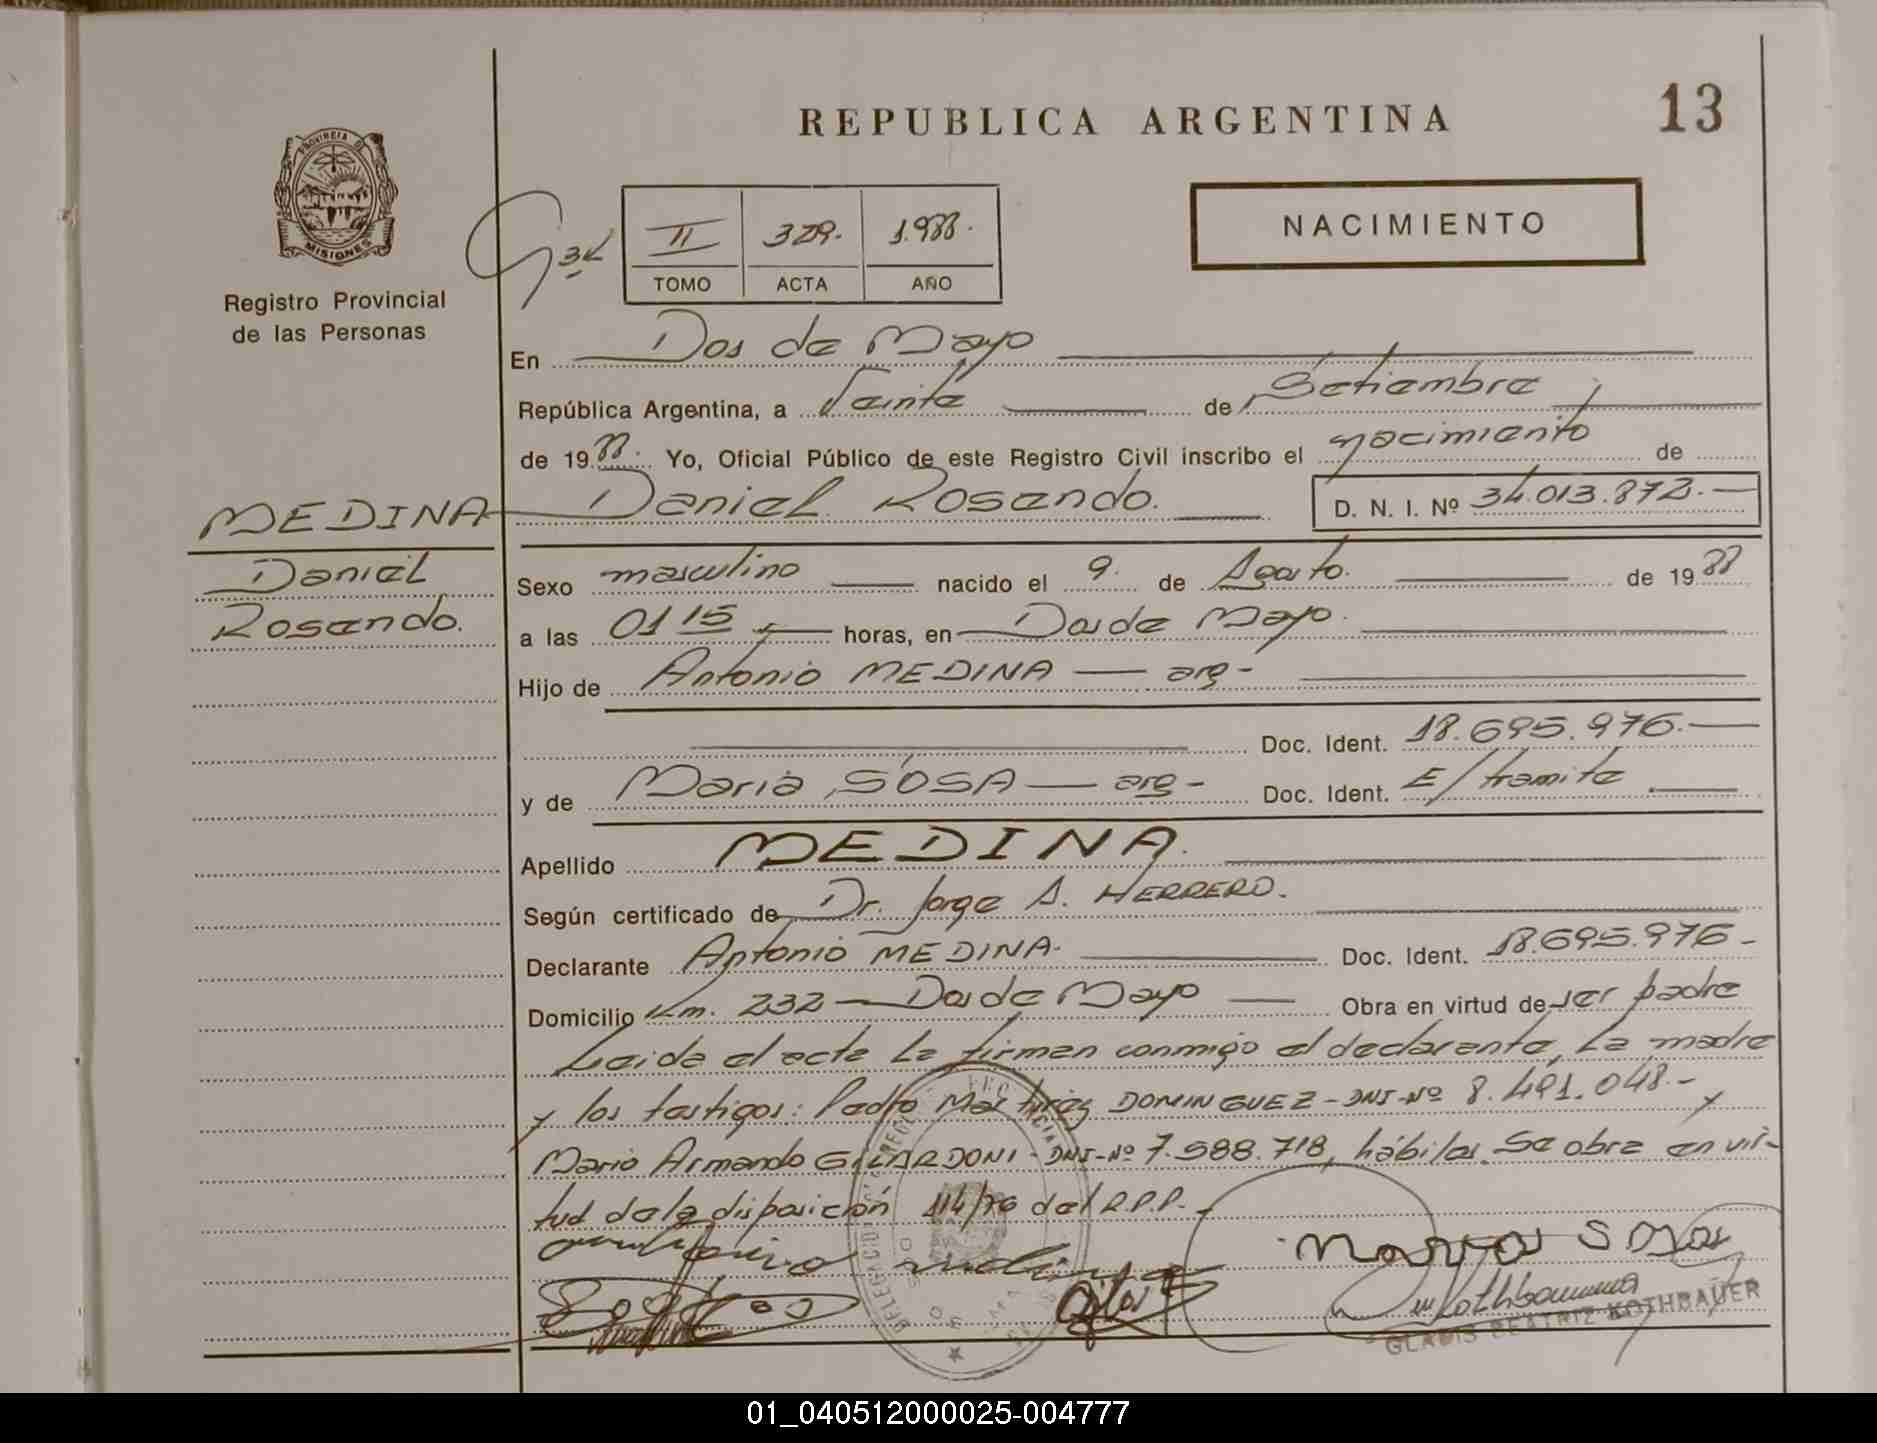 REPUBLICA ARGENTINA
13
PROVINCIA DE
MISIONES
Registro Provincial
de las Personas
II 329. 1.988.
TOMO ACTA AÑO
NACIMIENTO
En Dos de Mayo
República Argentina, a Veinte de Setiembre
de 1988. Yo, Oficial Público de este Registro Civil inscribo el nacimiento de
MEDINA Daniel Rosendo. D. N. I. Nº 34.013.872.
Daniel
Rosendo.
Sexo masculino nacido el 9. de Agosto. de 1988
a las 01 15 horas, en Dos de Mayo.
Hijo de Antonio MEDINA — arg-
Doc. Ident. 18.695.976.
y de Maria SOSA — arg- Doc. Ident. E/tramite
Apellido MEDINA.
Según certificado de Dr. Jorge A. HERRERO.
Declarante Antonio MEDINA. Doc. Ident. 18.695.976-
Domicilio Km. 232 — Dos de Mayo — Obra en virtud de ser padre
Leida el acta la firman conmigo el declarante, la madre
y los testigos: Pedro Martirez DOMINGUEZ-DNI-Nº 8.491.048.- y
Mario Armando GILARDONI-DNI-Nº 7.588.718, hábiles. Se obra en vir-
tud de la disposición 114/76 del R.P.P.-
GLADIS BEATRIZ KOTHBAUER
01_040512000025-004777